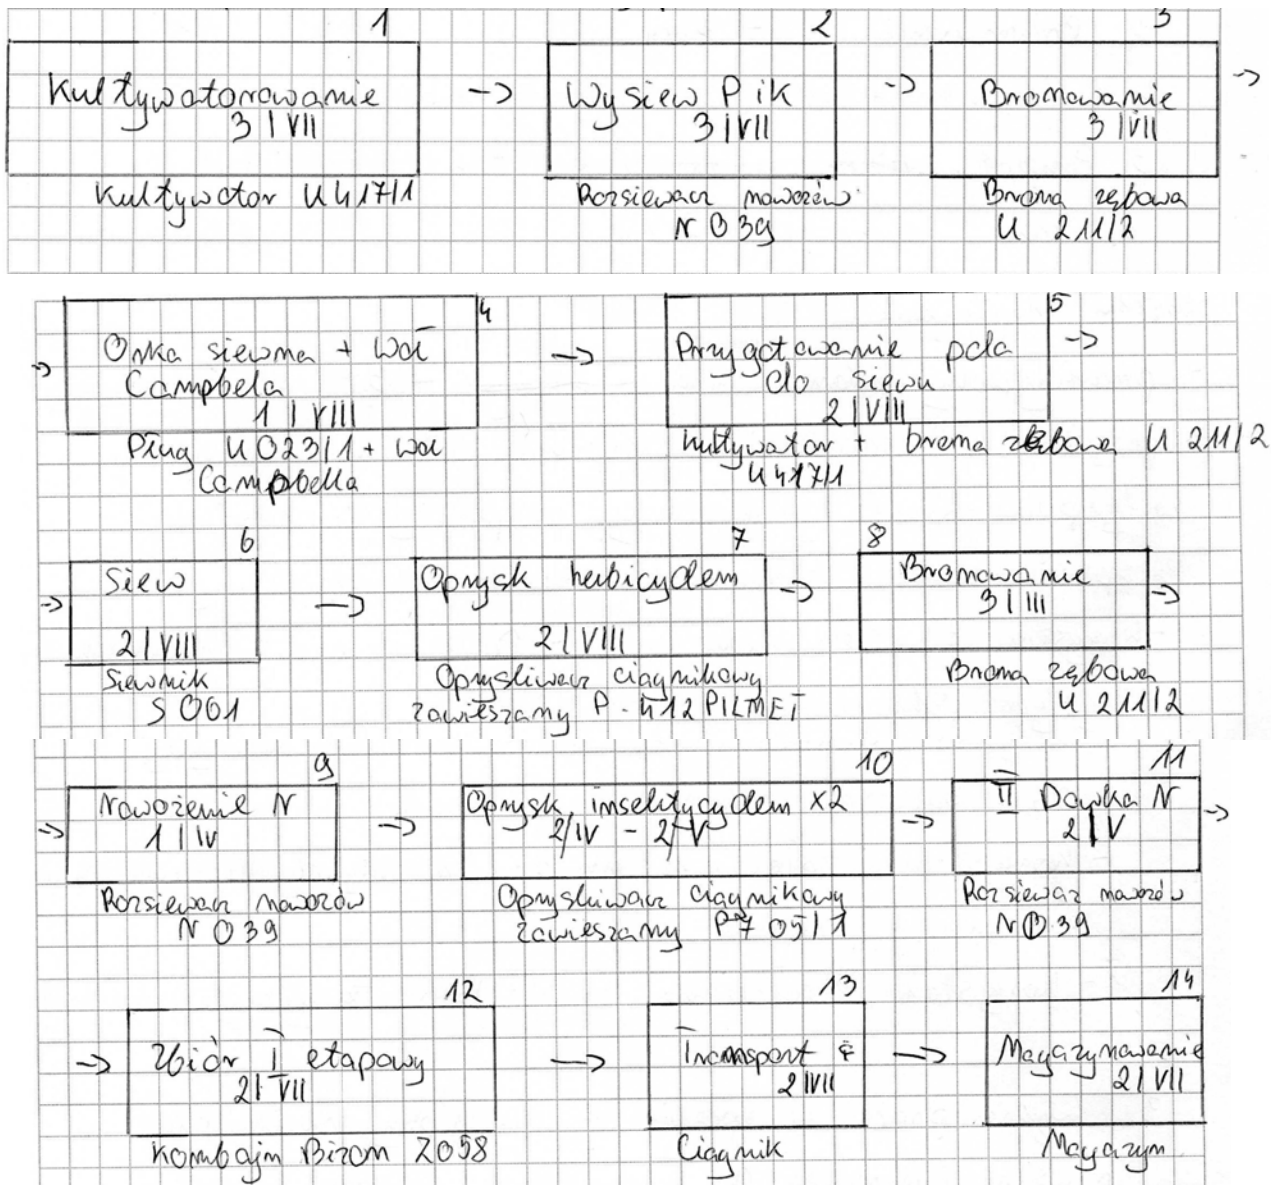 1
Kultywatorowanie
3 | VII
Kultywator U 417/1
->
2
Wysiew P i K
3 | VII
Rozsiewacz nawozów
N 039
->
3
Bronowanie
3 | VII
Brona zębowa
U 211/2
->
->
4
Orka siewna + wał
Campbela
1 | VIII
Pług U 023/1 + wał
Campbella
->
5
Przygotowanie pola
do siewu
2 | VIII
kultywator + brona zębowa U 211/2
U 417/1
->
->
6
Siew
2 | VIII
Siewnik
S 061
->
7
Oprysk herbicydem
2 | VIII
Opryskiwacz ciągnikowy
zawieszany P-412 PILMET
->
8
Bronowanie
3 | III
Brona zębowa
U 211/2
->
->
9
Nawożenie N
1 | IV
Rozsiewacz nawozów
N 039
->
10
Oprysk insektycydem x2
2/IV - 2/V
Opryskiwacz ciągnikowy
zawieszany 05/1
->
11
II Dawka N
2 | V
Rozsiewacz nawozów
N 039
->
->
12
Zbiór I etapowy
2 | VII
Kombajn Bizon Z058
->
13
Transport
2 | VII
Ciągnik
->
14
Magazynowanie
2 | VII
Magazyn